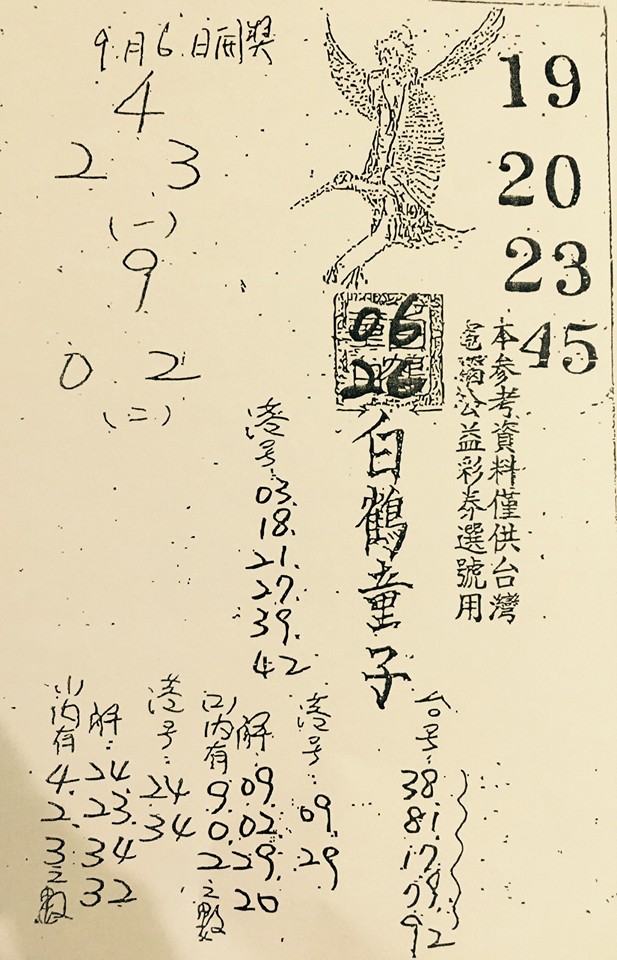 9月6日開獎
4
2 3
(一)
9
0 2
(二)
19
20
23
45
06
26
本参考資料僅供台灣
電腦公益彩券選號用
白鶴童子
港号:
03.
18.
21.
27.
39.
42
台号:
38.
81.
17.
79.
92
港号:
09.
29
解:
09.
02.
29.
20
(二)内有
9.
0.
2之數
港号:
24
34
解:
24.
23.
34
32
(一)内有
4.
2.
3之數